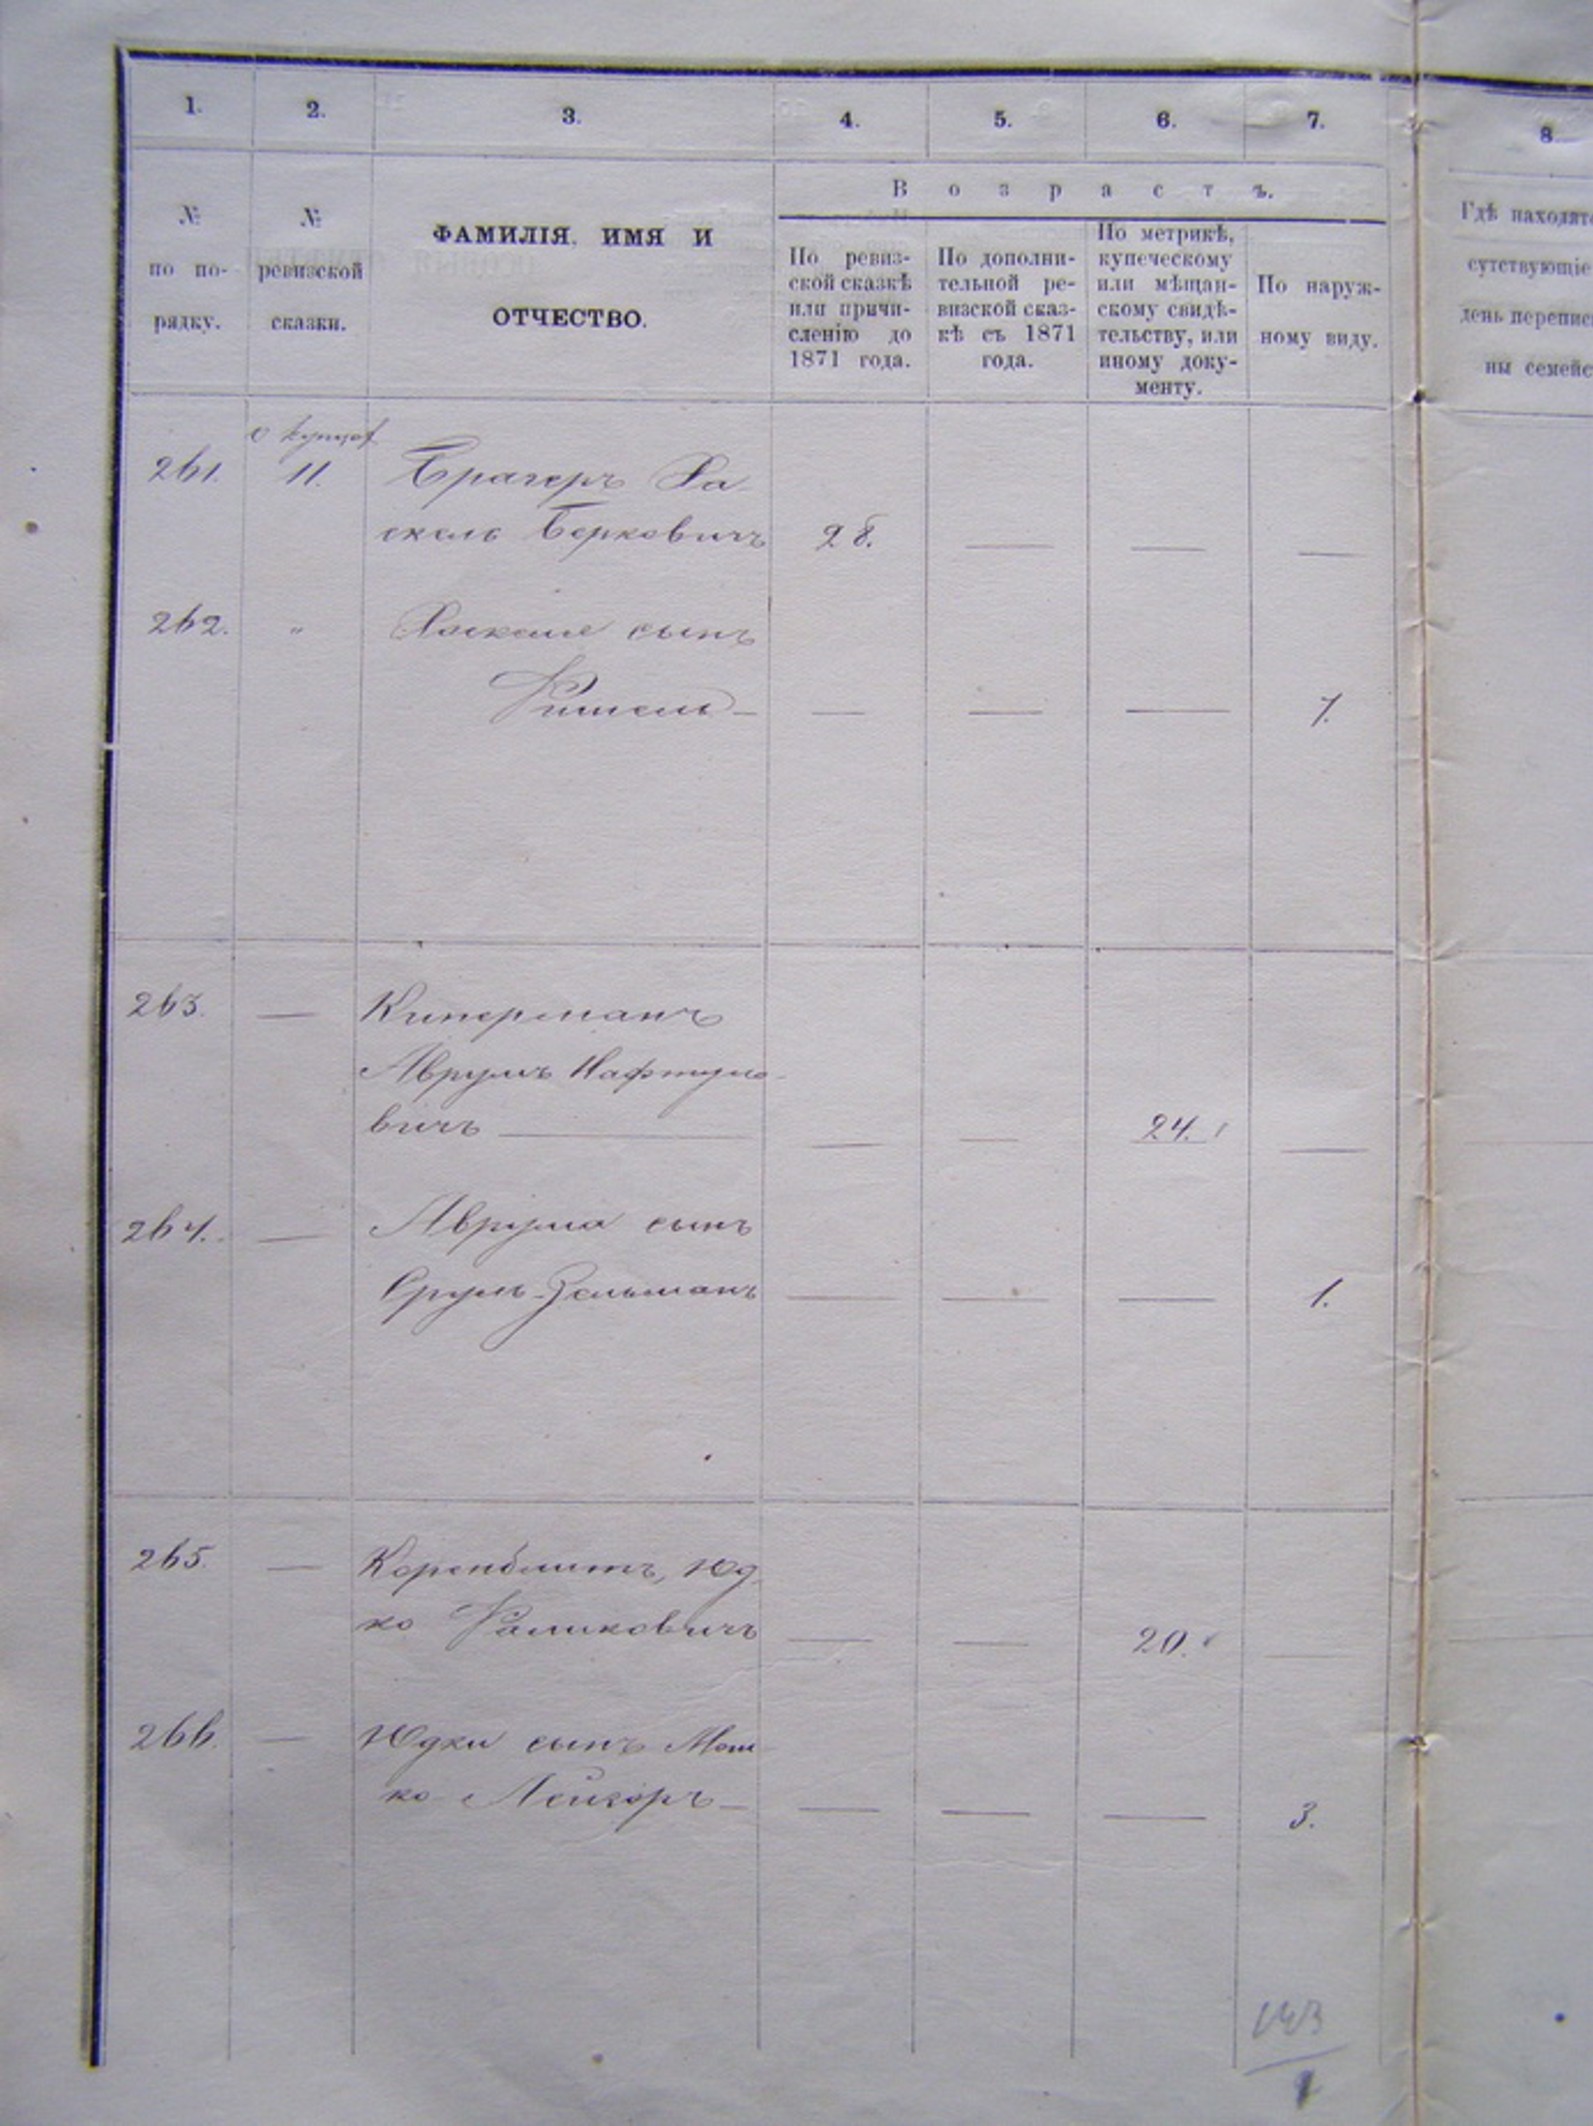 1. 2. 3. 4. 5. 6. 7. 8.
В о з р а с т ъ.
№
по по-
рядку.
№
ревизской
сказки.
ФАМИЛІЯ, ИМЯ И
ОТЧЕСТВО.
По ревиз-
ской сказкѣ
или причи-
сленію до
1871 года.
По дополни-
тельной ре-
визской сказ-
кѣ съ 1871
года.
По метрикѣ,
купеческому
или мѣщан-
скому свидѣ-
тельству, или
иному доку-
менту.
По наруж-
ному виду.
Гдѣ находят
сутствующіе
день перепис
ны семейс
261. 11. Брагеръ Ха-
скель Берковичъ 28. — — —
262. " Хаскеля сынъ
— — — — 7.
263. — Киперманъ
Аврумъ Нафтуло-
вичъ — — — 24. —
264. — Аврума сынъ
Срулъ-Зельманъ — — — 1.
265. — Коренблитъ, Юд-
ко — — 20. —
266. — Юдки сынъ Мош-
ко Лейзоръ — — — — 3.